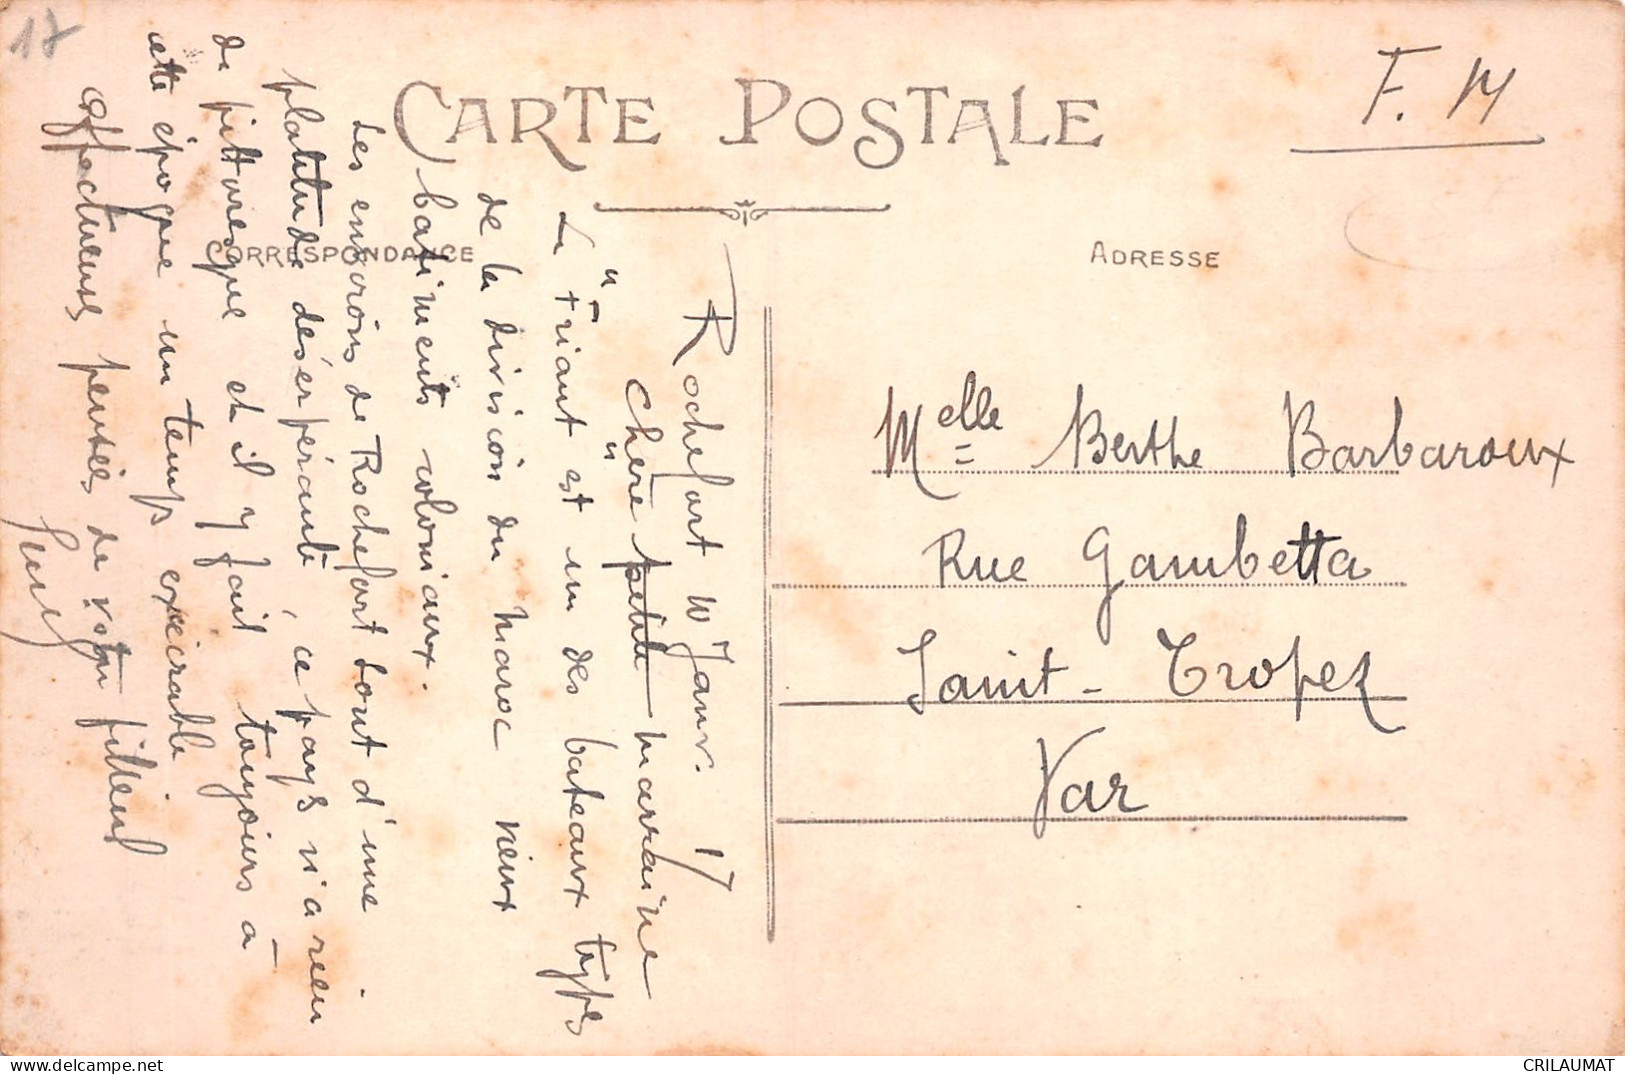 17
CARTE POSTALE
F. M
CORRESPONDANCE
ADRESSE
Rochefort 10 Janv. 17
Chère petite marraine
Le "Friant" est un des bateaux types
de la division du Maroc vieux
batiments coloniaux.
Les environs de Rochefort sont d'une
platitude désespérante, ce pays n'a rien
de pittoresque et il y fait toujours à
cette époque un temps exécrable
Affectueuses pensées de votre filleul
Melle Berthe Barbaroux
Rue Gambetta
Saint-Tropez
Var
CRILAUMAT